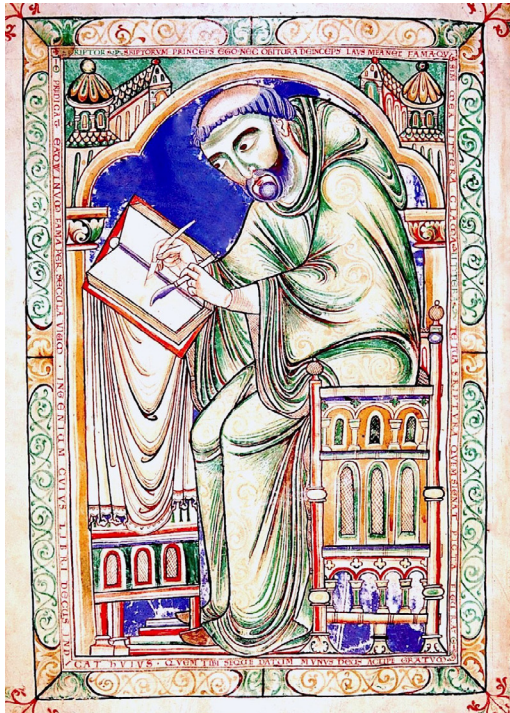 SCRIPTOR SRIPTORVM PRINCEPS EGO NEC OBITVRA DEINCEPS LAVS MEA NEC FAMA QVI
SIM MEA LITTERA CLAMA LITTERA TE TVA SRIPTVRA QVEM SIGNAT PICTA FIGVRA
PREDICAT EADWINVM FAMA PER SECVLA VIVVM · INGENIVM CVIVS LIBRI DECVS INDI
CAT HVIVS · QVEM TIBI SEQVE DATVM MVNVS DEVS ACCIPE GRATVM